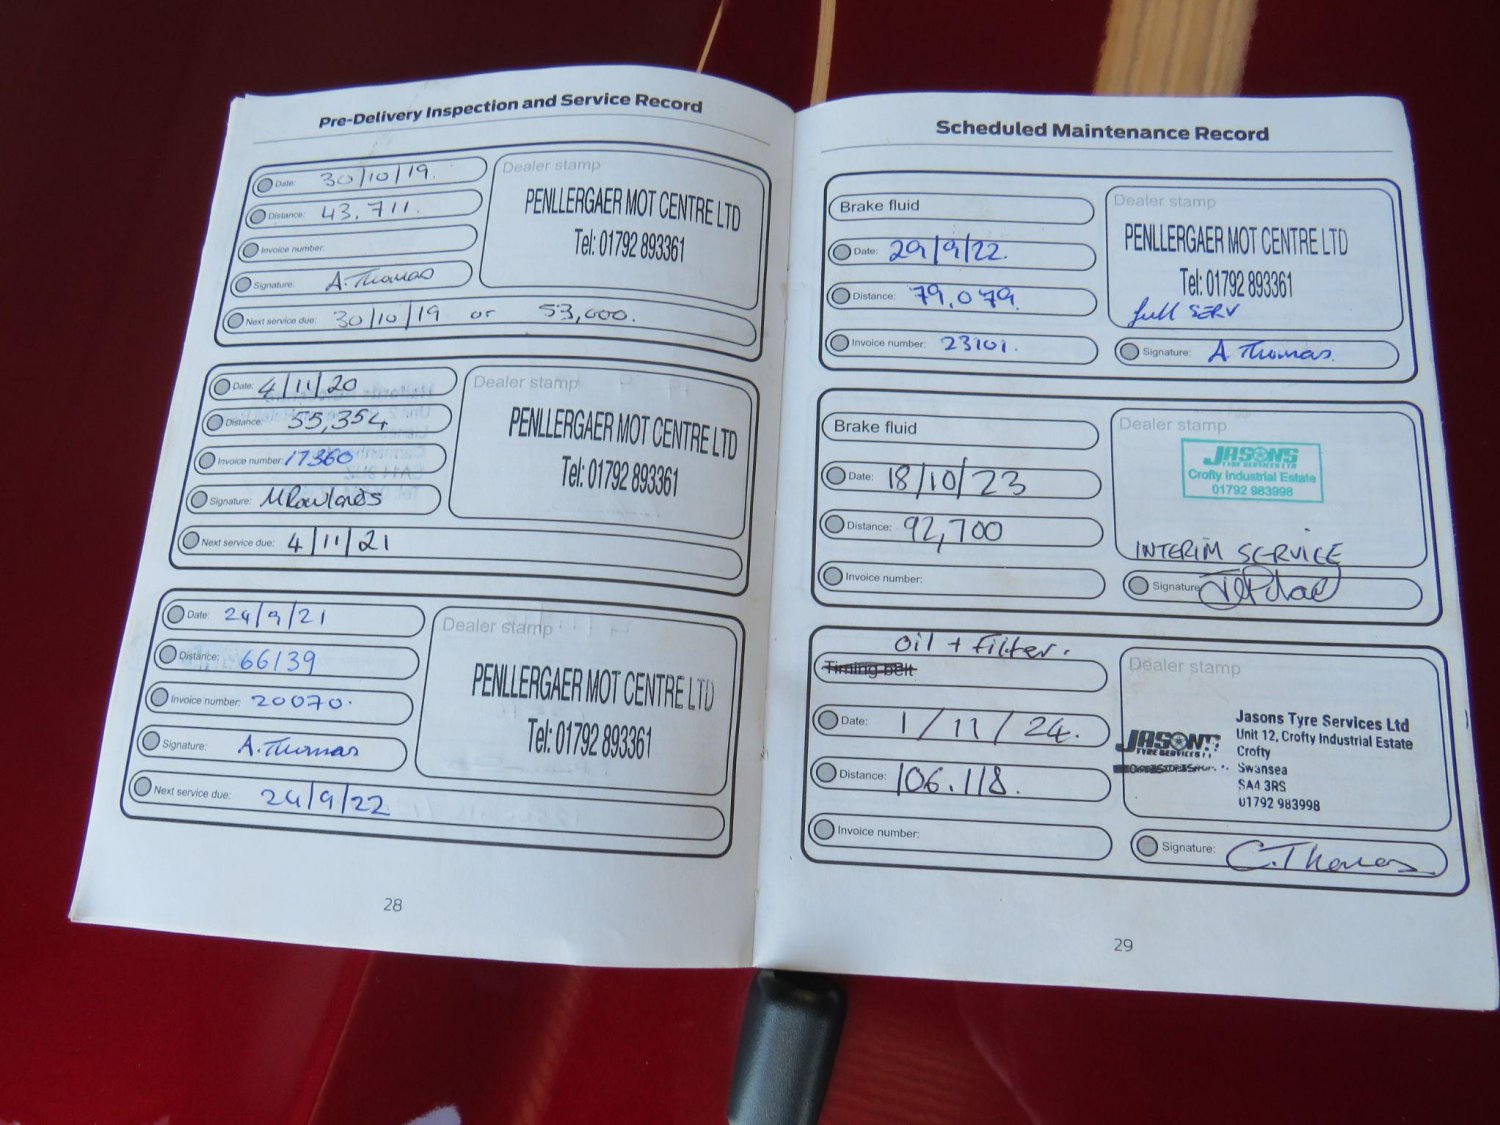 Pre-Delivery Inspection and Service Record
Date: 30/10/19.
Distance: 43,711.
Invoice number:
Signature: A. Thomas
Next service due: 30/10/19 or 53,000.
Dealer stamp
PENLLERGAER MOT CENTRE LTD
Tel: 01792 893361
Date: 4/11/20
Distance: 55,354
Invoice number: 17360
Signature: M Rowlands
Next service due: 4/11/21
Dealer stamp
PENLLERGAER MOT CENTRE LTD
Tel: 01792 893361
Date: 24/9/21
Distance: 66139
Invoice number: 20070.
Signature: A. Thomas
Next service due: 24/9/22
Dealer stamp
PENLLERGAER MOT CENTRE LTD
Tel: 01792 893361
28
Scheduled Maintenance Record
Brake fluid
Date: 29/9/22.
Distance: 79,079.
Invoice number: 23101.
Dealer stamp
PENLLERGAER MOT CENTRE LTD
Tel: 01792 893361
full SERV
Signature: A. Thomas.
Brake fluid
Date: 18/10/23
Distance: 92,700
Invoice number:
Dealer stamp
JASONS
TYRE SERVICES LTD
Crofty Industrial Estate
01792 983998
INTERIM SERVICE
Signature:
Oil + Filter.
Timing belt
Date: 1/11/24.
Distance: 106.118.
Invoice number:
Dealer stamp
JASONS
TYRE SERVICES
Jasons Tyre Services Ltd
Unit 12, Crofty Industrial Estate
Crofty
Swansea
SA4 3RS
01792 983998
Signature: C. Thomas
29